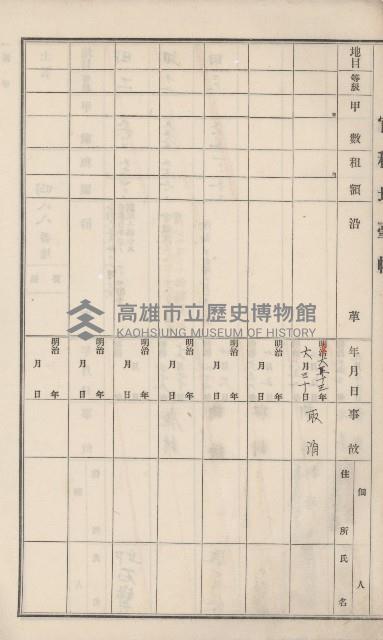 地目 等級 甲數 租額 沿革 年月日 事故 佃人 住所 氏名
明治 大正十三年
六月三十日
取消
明治 年 月 日
明治 年 月 日
明治 年 月 日
明治 年 月 日
明治 年 月 日
明治 年 月 日
高雄市立歷史博物館
KAOHSIUNG MUSEUM OF HISTORY